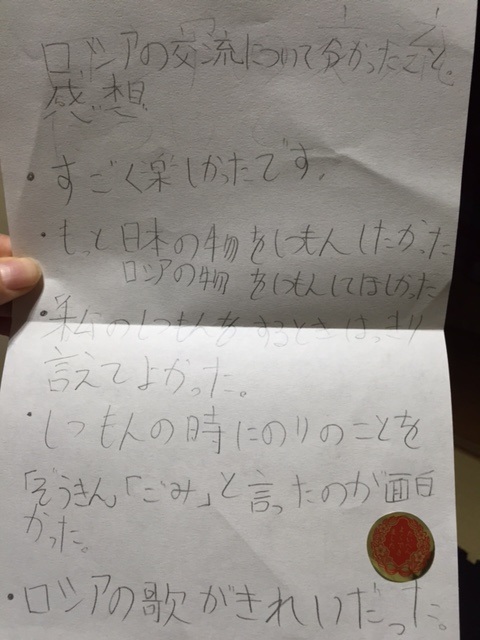 ロシアの交流について分かったこと。
感想
・すごく楽しかったです。
・もっと日本の物をしつもんしたかった
ロシアの物をしつもんしてほしかった
・私のしつもんをするときはっきり
言えてよかった。
・しつもんの時にのりのことを
「ぞうきん」「ごみ」と言ったのが面白
かった。
・ロシアの歌がきれいだった。